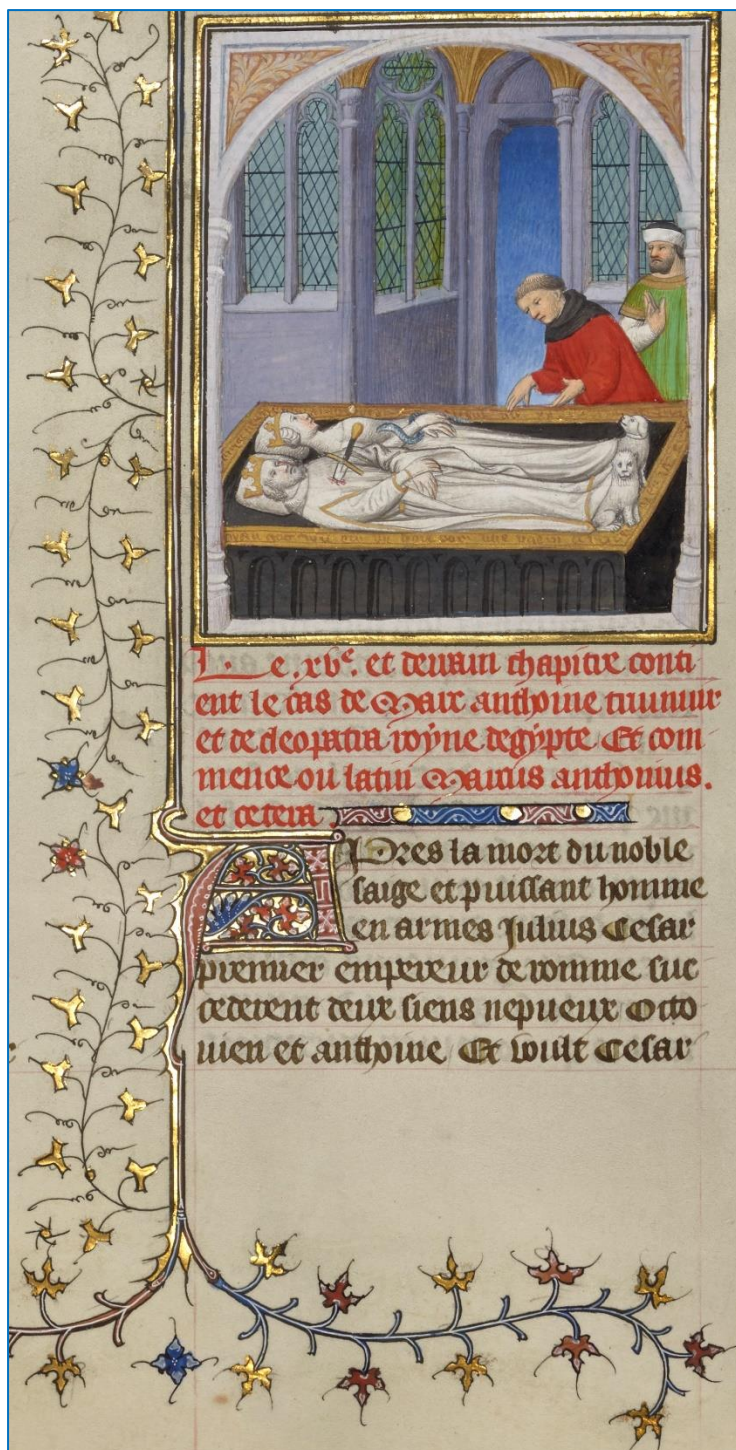 Le .xve. et derrain chapitre conti
ent le cas de Marc anthoine triumuir
et de cleopatra royne degypte Et com
mence ou latin Marcus anthonius.
et cetera
Apres la mort du noble
saige et puissant homme
en armes Julius Cesar
premier empereur de romme suc
cederent deux siens nepueux Octo
uien et anthoine Et voult Cesar